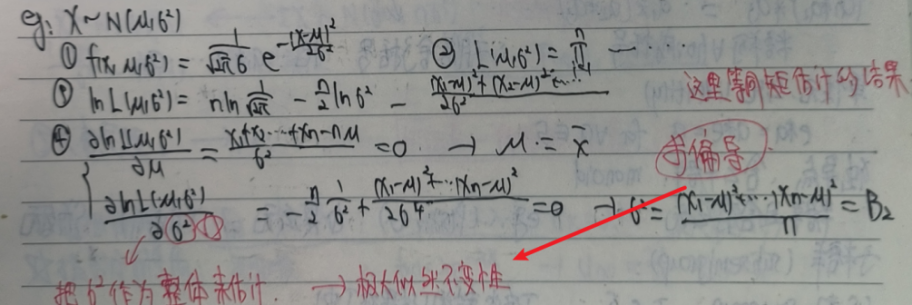 eg: X~N(μ,σ²)
① f(x, μ,σ²) = 1/(√2π σ) e^(-(x-μ)²/2σ²) ② L(μ,σ²) = ∏ⁿᵢ₌₁ ……
③ ln L(μ,σ²) = n ln 1/√2π - n/2 ln σ² - ((x₁-μ)²+(x₂-μ)²+…)/2σ² 这里等同矩估计的结果
④ ∂lnL(μ,σ²)/∂μ = (x₁+x₂…+xn-nμ)/σ² = 0 → μ = x̄ 求偏导
∂lnL(μ,σ²)/∂(σ²) = -n/2 1/σ² + ((x₁-μ)²+…(xn-μ)²)/2σ⁴ = 0 → σ² = ((x₁-μ)²+…(xn-μ)²)/n = B₂
把σ²作为整体来估计. → 极大似然不变性